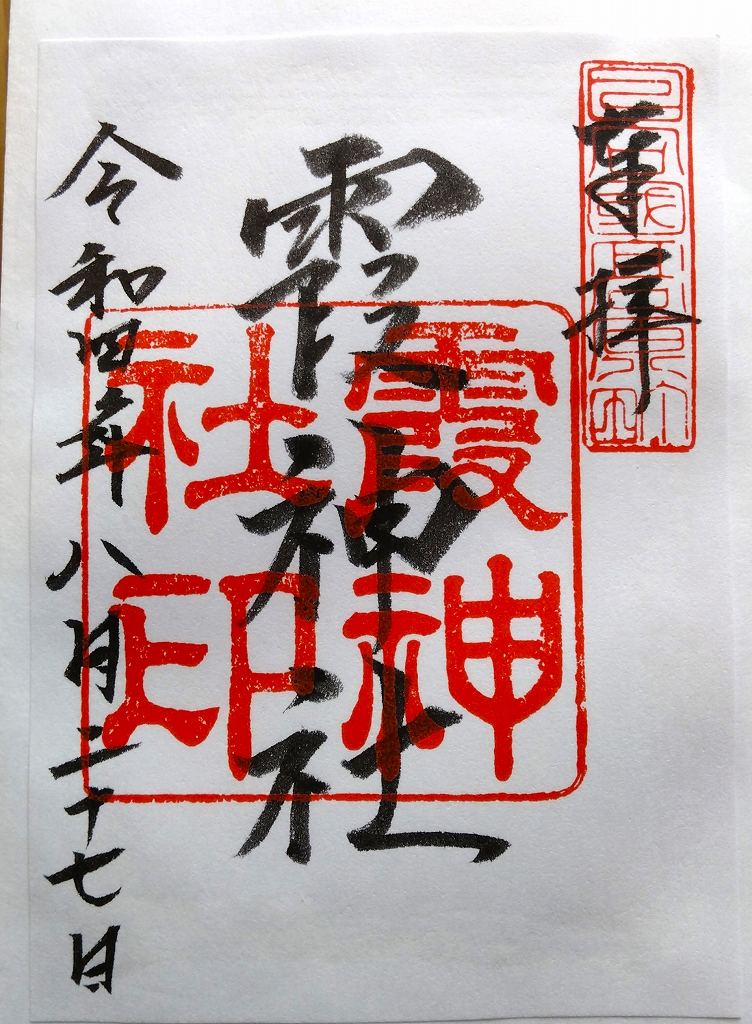 奉拝
霞神社
霞神
社印
令和四年八月二十七日